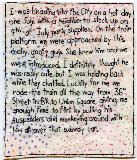 I was heading into the City on a hot day
one July with a neighbor to stock up on
4th of July party supplies. On the train
platform we were approached by this
really goofy guy. She knew him and we
were introduced. I definitely thought he
was really cute but I was holding back
while they chatted. Luckily for me we
rode the train all the way from 36th
Street to Union Square, giving me
enough time to flirt by pulling his
suspenders and monkeying around with
him all over that subway car.